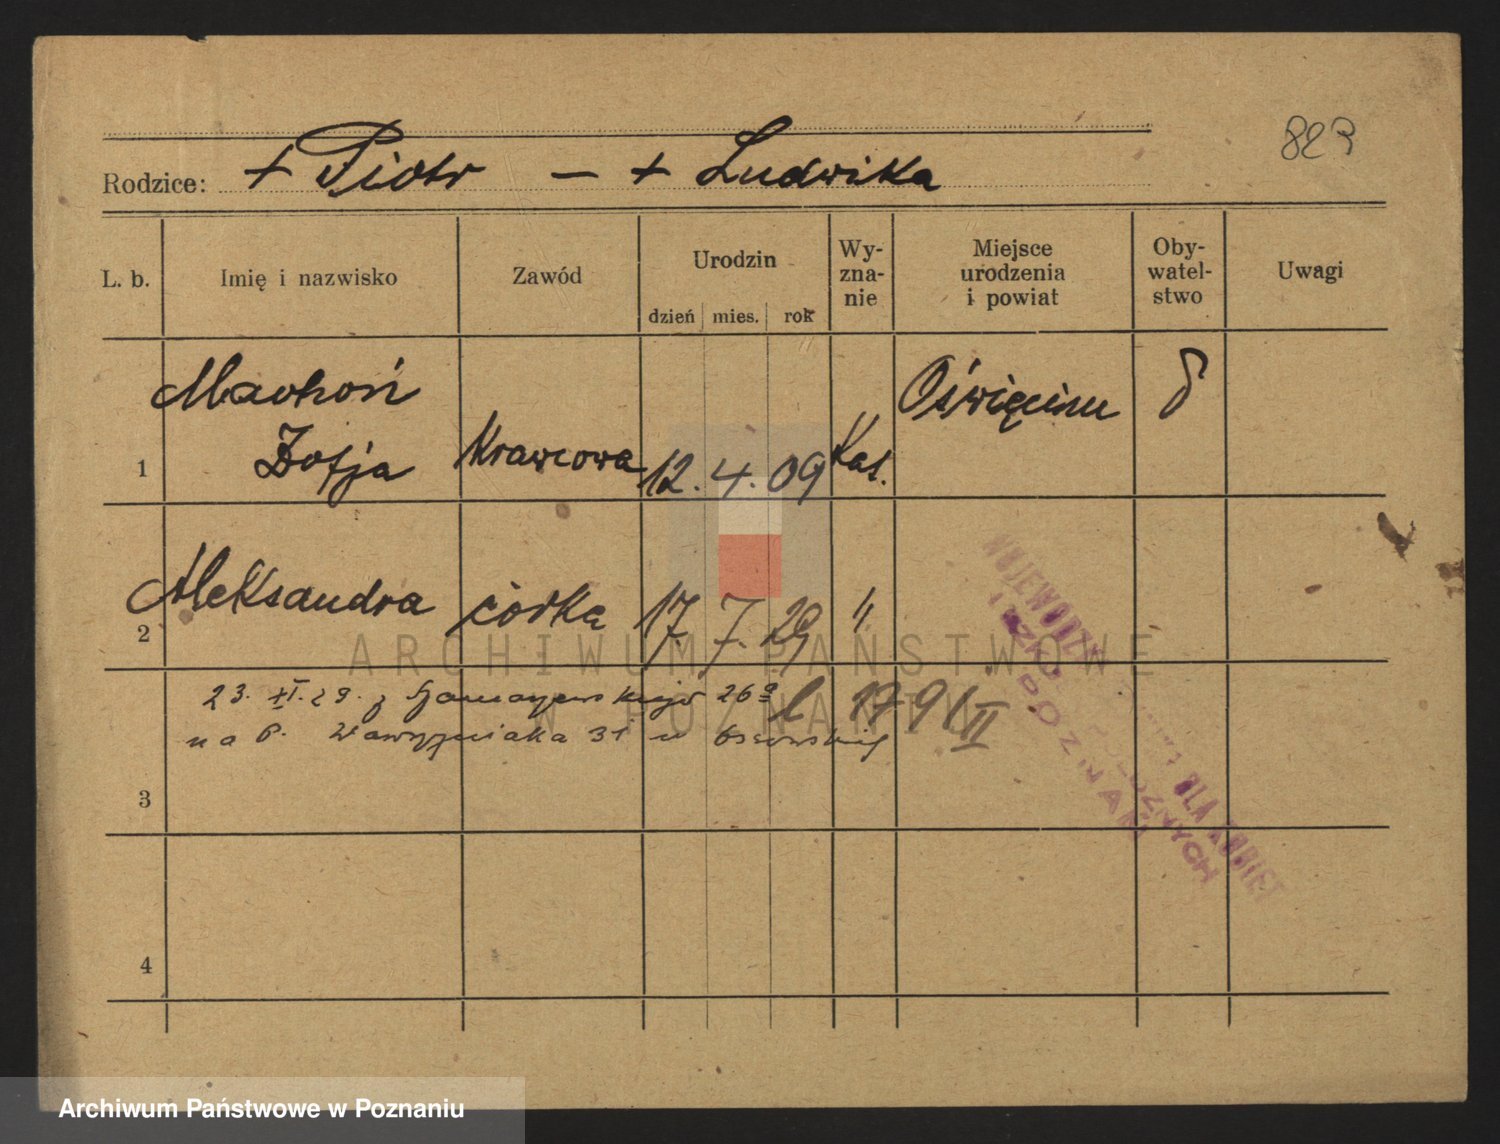 823
Rodzice: + Piotr — + Ludwika
L. b. Imię i nazwisko Zawód Urodzin dzień mies. rok Wy-zna-nie Miejsce urodzenia i powiat Oby-watel-stwo Uwagi
Machoń Oświęcim
1 Zofja Krawcowa 12. 4. 09 Kat.
Aleksandra córka 17. 7. 29 "
2
ARCHIWUM PAŃSTWOWE
W POZNANIU
23. XI. 29. z 26a 1791 II
na P. Wawrzyniaka 31 u
3
4
WOJEWÓDZK DLA KOBIET
POŁOŻNYCH
POZNAŃ
Archiwum Państwowe w Poznaniu